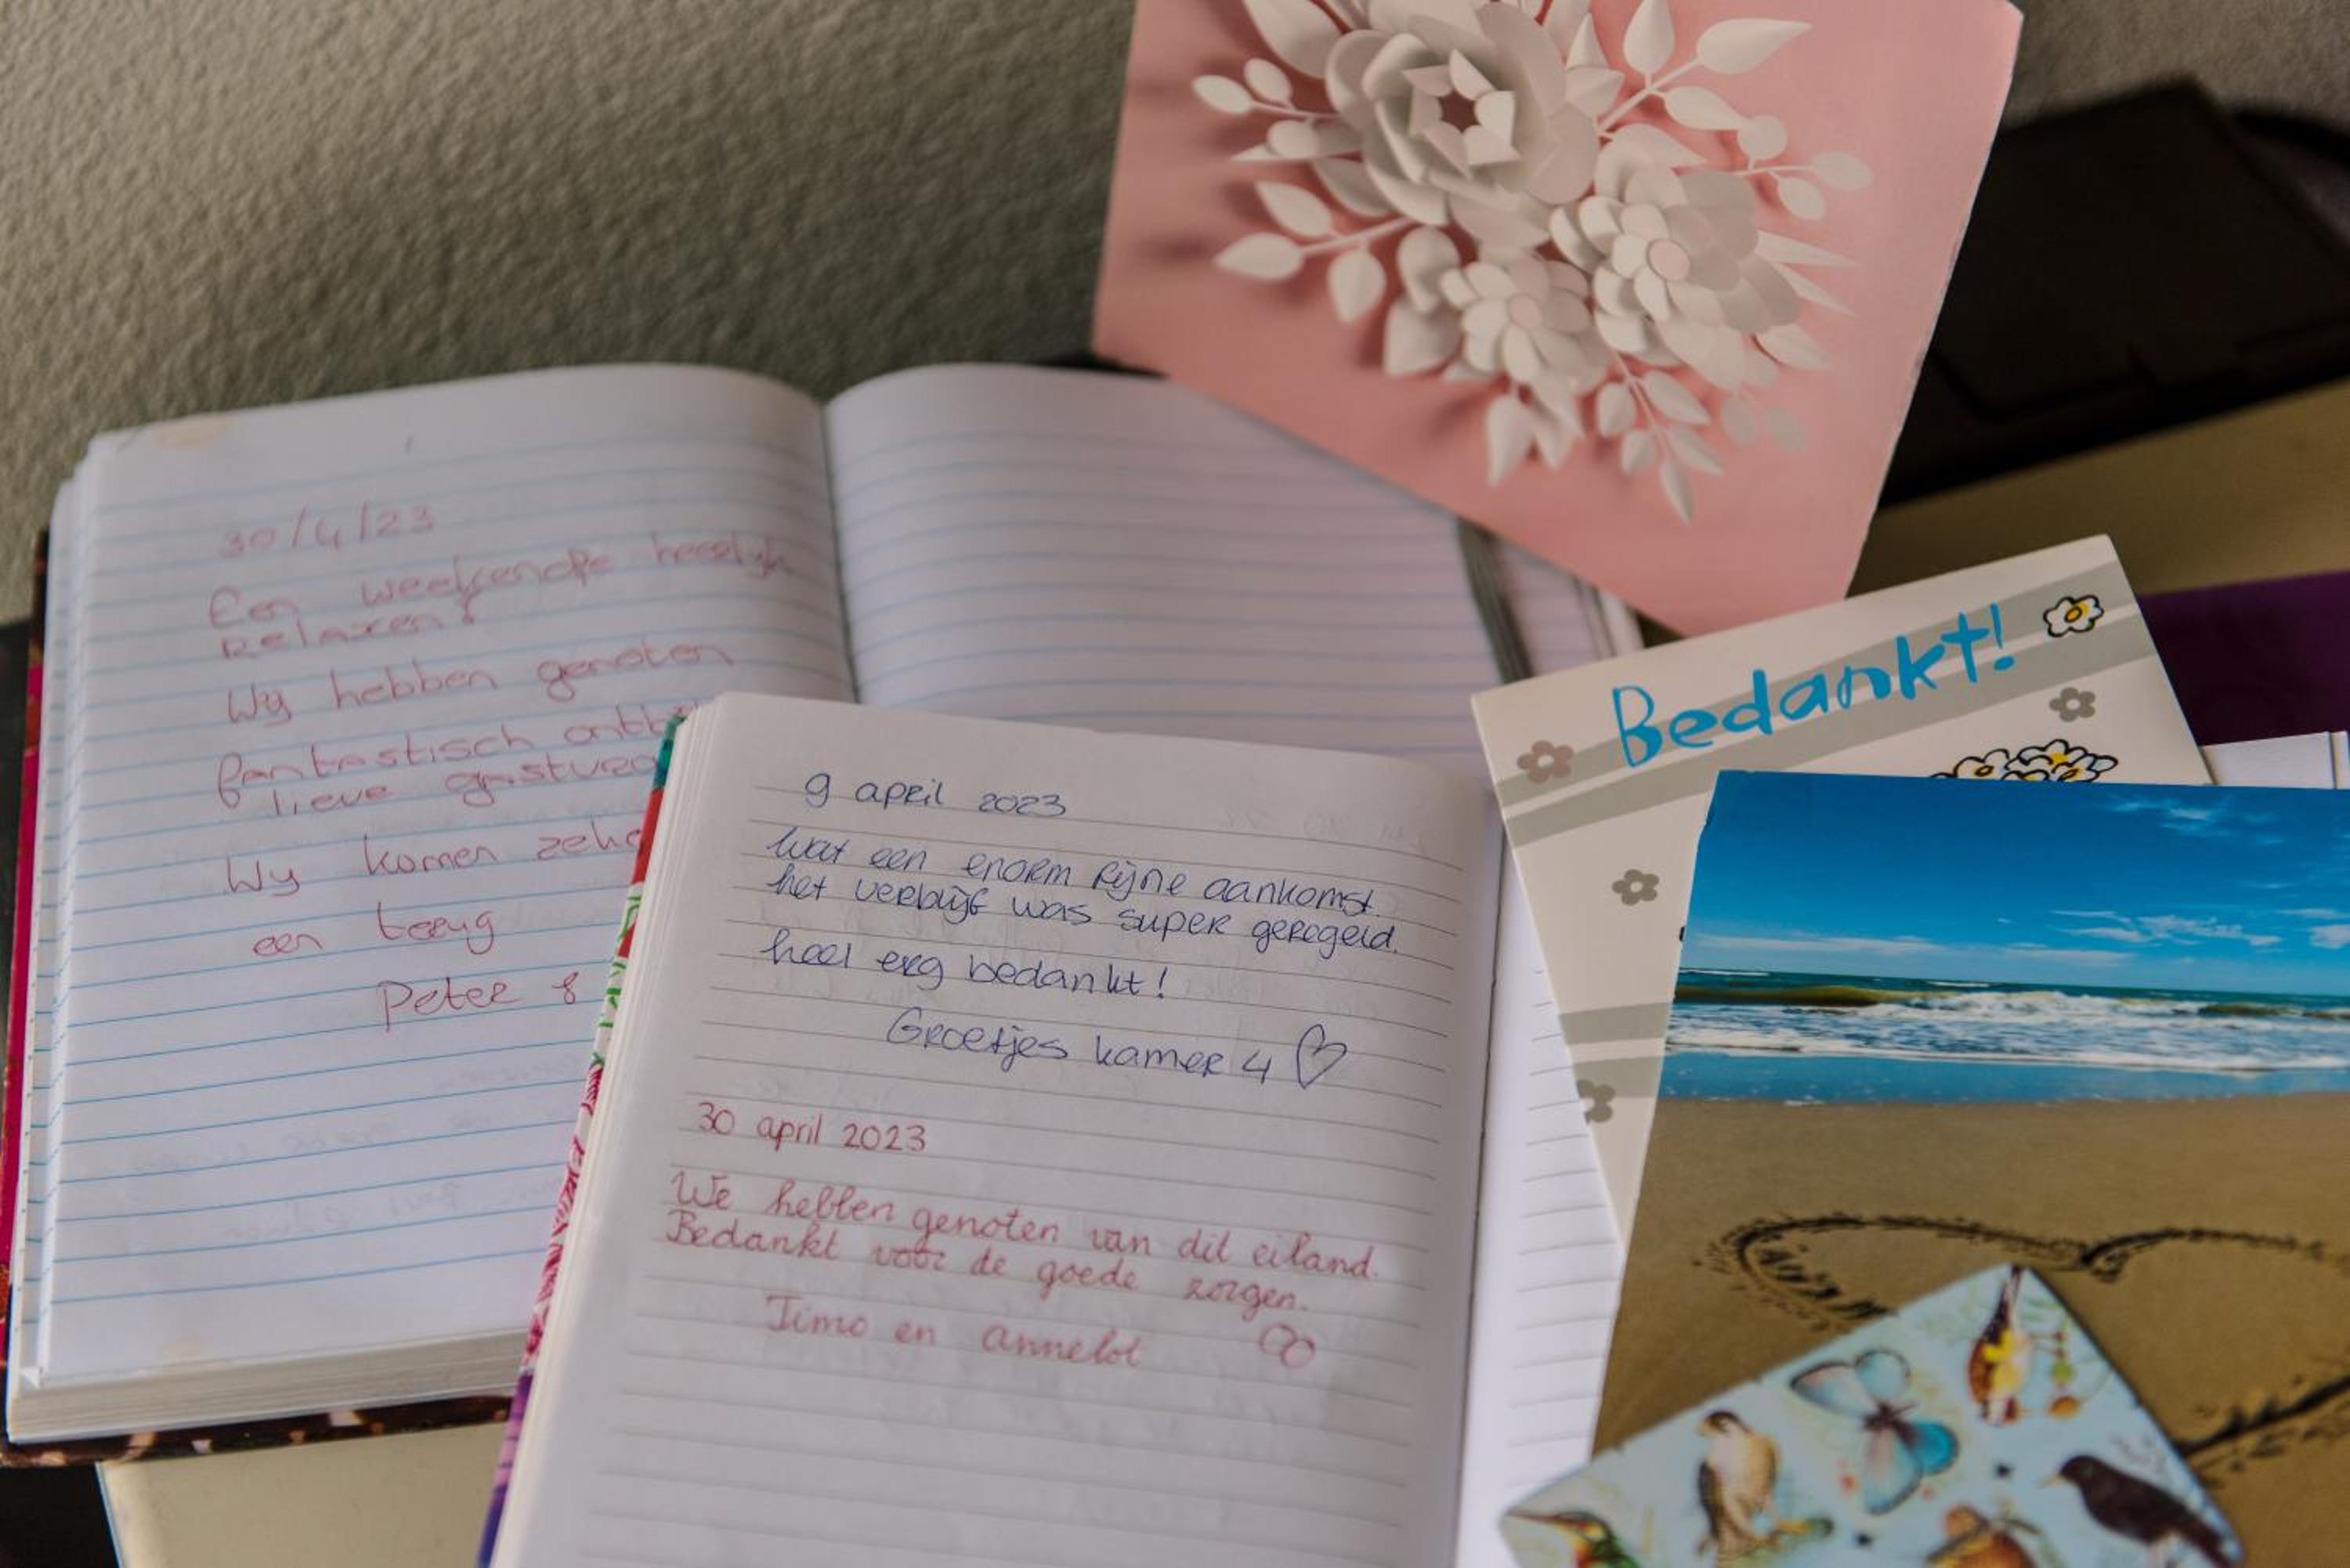 30/4/23
Een weekendje heerlijk
relaxen!
Wij hebben genoten
fantastisch
lieve
Wij komen
een terug
Peter &
9 april 2023
wat een enorm fijne aankomst.
het verblijf was super geregeld.
heel erg bedankt!
Groetjes kamer 4
30 april 2023
We hebben genoten van dit eiland.
Bedankt voor de goede zorgen.
Timo en Annelot
Bedankt!